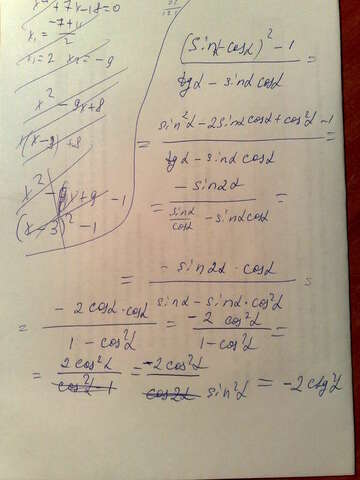 x² + 7x - 18 = 0
x₁ = -7 + 11 / 2
x₁ = 2 x₂ = -9
x² - 9x + 8
x(x - 9) + 8
x² - 6x + 9 - 1
(x - 3)² - 1
(sinα - cosα)² - 1 / tgα - sinα cosα =
= sin²α - 2sinα cosα + cos²α - 1 / tgα - sinα cosα =
= - sin2α / sinα/cosα - sinα cosα =
= - sin2α · cosα / sinα - sinα · cos²α =
= - 2 cosα · cosα / 1 - cos²α = - 2 cos²α / 1 - cos²α =
= 2 cos²α / cos²α - 1 = -2 cos²α / cos2α sin²α = -2 ctg²α